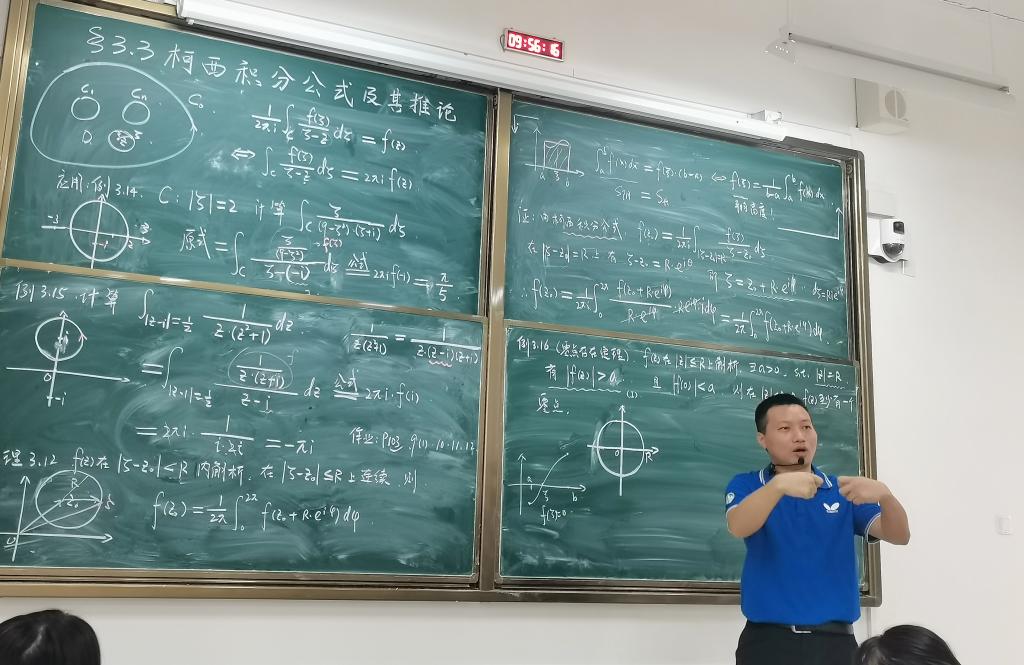 §3.3 柯西积分公式及其推论
C₁ Cₙ C₀
D
\frac{1}{2πi}∫_C \frac{f(ζ)}{ζ-z}dζ = f(z)
⇔ ∫_C \frac{f(ζ)}{ζ-z}dζ = 2πi f(z)
应用: 例3.14. C: |ζ|=2 计算 ∫_C \frac{ζ}{(9-ζ²)(ζ+i)}dζ
-3 -i 2 3
原式 = ∫_C \frac{\frac{ζ}{(9-ζ²)}}{ζ-(-i)}dζ 公式 2πi f(-i) = \frac{π}{5}
例3.15. 计算 ∫_{|z-i|=\frac{1}{2}} \frac{1}{z·(z²+1)}dz.
\frac{1}{z(z²+1)} = \frac{1}{z·(z-i)(z+i)}
i 0 -i
= ∫_{|z-i|=\frac{1}{2}} \frac{\frac{1}{z·(z+i)}}{z-i}dz 公式 2πi·f(i)
= 2πi·\frac{1}{i·2i} = -πi
作业: P103. 9(1). 10. 11. 12
理3.12 f(z)在|ζ-z₀|<R内解析, 在|ζ-z₀|≤R上连续, 则
R z₀ ζ
f(z₀) = \frac{1}{2π}∫_0^{2π} f(z₀+R·e^{iφ})dφ.
a ζ b
∫_a^b f(x)dx = f(ζ)·(b-a) ⇔ f(ζ) = \frac{1}{b-a}∫_a^b f(x)dx
证: 由柯西积分公式 f(z₀) = \frac{1}{2πi}∫_{|ζ-z₀|=R} \frac{f(ζ)}{ζ-z₀}dζ
在|ζ-z₀|=R上有 ζ-z₀=R·e^{iφ} 即 ζ=z₀+R·e^{iφ}
∴ f(z₀) = \frac{1}{2πi}∫_0^{2π} \frac{f(z₀+R·e^{iφ})}{R·e^{iφ}}·R·e^{iφ}·idφ = \frac{1}{2π}∫_0^{2π} f(z₀+R·e^{iφ})dφ.
例3.16 (零点存在定理) f(z)在|z|≤R上解析, ∃a>0, s.t. |z|=R
有 |f(z)|>a 且 |f(0)|<a 则在
零点.
(1)
0 R
a ζ b
f(ζ)=0
09:56:16